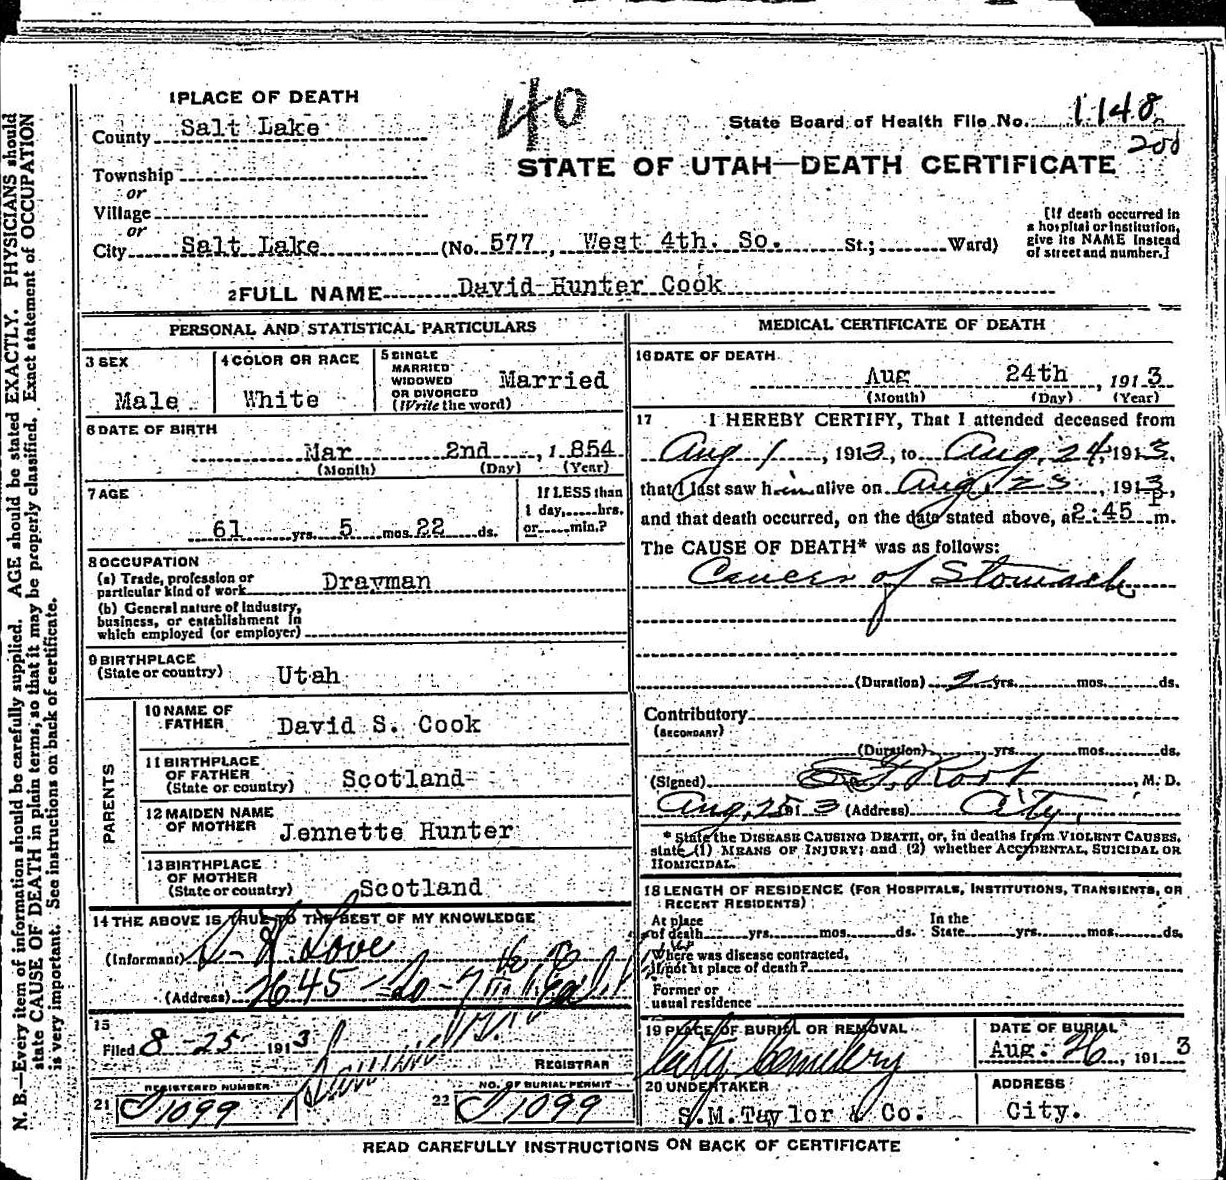 1 PLACE OF DEATH
40
County Salt Lake
State Board of Health File No. 1148
200
STATE OF UTAH—DEATH CERTIFICATE
Township
or
Village
or
City Salt Lake (No. 577, West 4th. So. St.; Ward)
[If death occurred in
a hospital or institution,
give its NAME instead
of street and number.]
2 FULL NAME David Hunter Cook
PERSONAL AND STATISTICAL PARTICULARS
3 SEX
Male
4 COLOR OR RACE
White
5 SINGLE
MARRIED
WIDOWED
OR DIVORCED
(Write the word)
Married
6 DATE OF BIRTH
Mar 2nd , 1 854
(Month) (Day) (Year)
7 AGE
61 yrs. 5 mos. 22 ds.
If LESS than
1 day, hrs.
or min.?
8 OCCUPATION
(a) Trade, profession or
particular kind of work Drayman
(b) General nature of industry,
business, or establishment in
which employed (or employer)
9 BIRTHPLACE
(State or country) Utah
PARENTS
10 NAME OF
FATHER David S. Cook
11 BIRTHPLACE
OF FATHER
(State or country) Scotland
12 MAIDEN NAME
OF MOTHER Jennette Hunter
13 BIRTHPLACE
OF MOTHER
(State or country) Scotland
14 THE ABOVE IS TRUE TO THE BEST OF MY KNOWLEDGE
(Informant) Love
(Address) 2645 So 7th East
15
Filed 8-25 1913
REGISTRAR
REGISTERED NUMBER
21 1099
NO. OF BURIAL PERMIT
22 1099
MEDICAL CERTIFICATE OF DEATH
16 DATE OF DEATH
Aug 24th , 1913
(Month) (Day) (Year)
17 I HEREBY CERTIFY, That I attended deceased from
Aug 1 , 1913, to Aug. 24, 1913,
that I last saw him alive on Aug. 23 , 1913,
and that death occurred, on the date stated above, at 2:45 P m.
The CAUSE OF DEATH* was as follows:
Cancer of Stomach
(Duration) 2 yrs. mos. ds.
Contributory
(SECONDARY)
(Duration) yrs. mos. ds.
(Signed) Root , M. D.
Aug. 25 1913 (Address) City.
* State the DISEASE CAUSING DEATH, or, in deaths from VIOLENT CAUSES,
state (1) MEANS OF INJURY; and (2) whether ACCIDENTAL, SUICIDAL OR
HOMICIDAL.
18 LENGTH OF RESIDENCE (FOR HOSPITALS, INSTITUTIONS, TRANSIENTS, OR
RECENT RESIDENTS)
At place In the
of death yrs. mos. ds. State yrs. mos. ds.
Where was disease contracted,
if not at place of death?
Former or
usual residence
19 PLACE OF BURIAL OR REMOVAL
City Cemetery
DATE OF BURIAL
Aug. 26, 1913
20 UNDERTAKER
S.M.Taylor & Co.
ADDRESS
City.
READ CAREFULLY INSTRUCTIONS ON BACK OF CERTIFICATE
N. B.—Every item of information should be carefully supplied. AGE should be stated EXACTLY. PHYSICIANS should
state CAUSE OF DEATH in plain terms, so that it may be properly classified. Exact statement of OCCUPATION
is very important. See instructions on back of certificate.